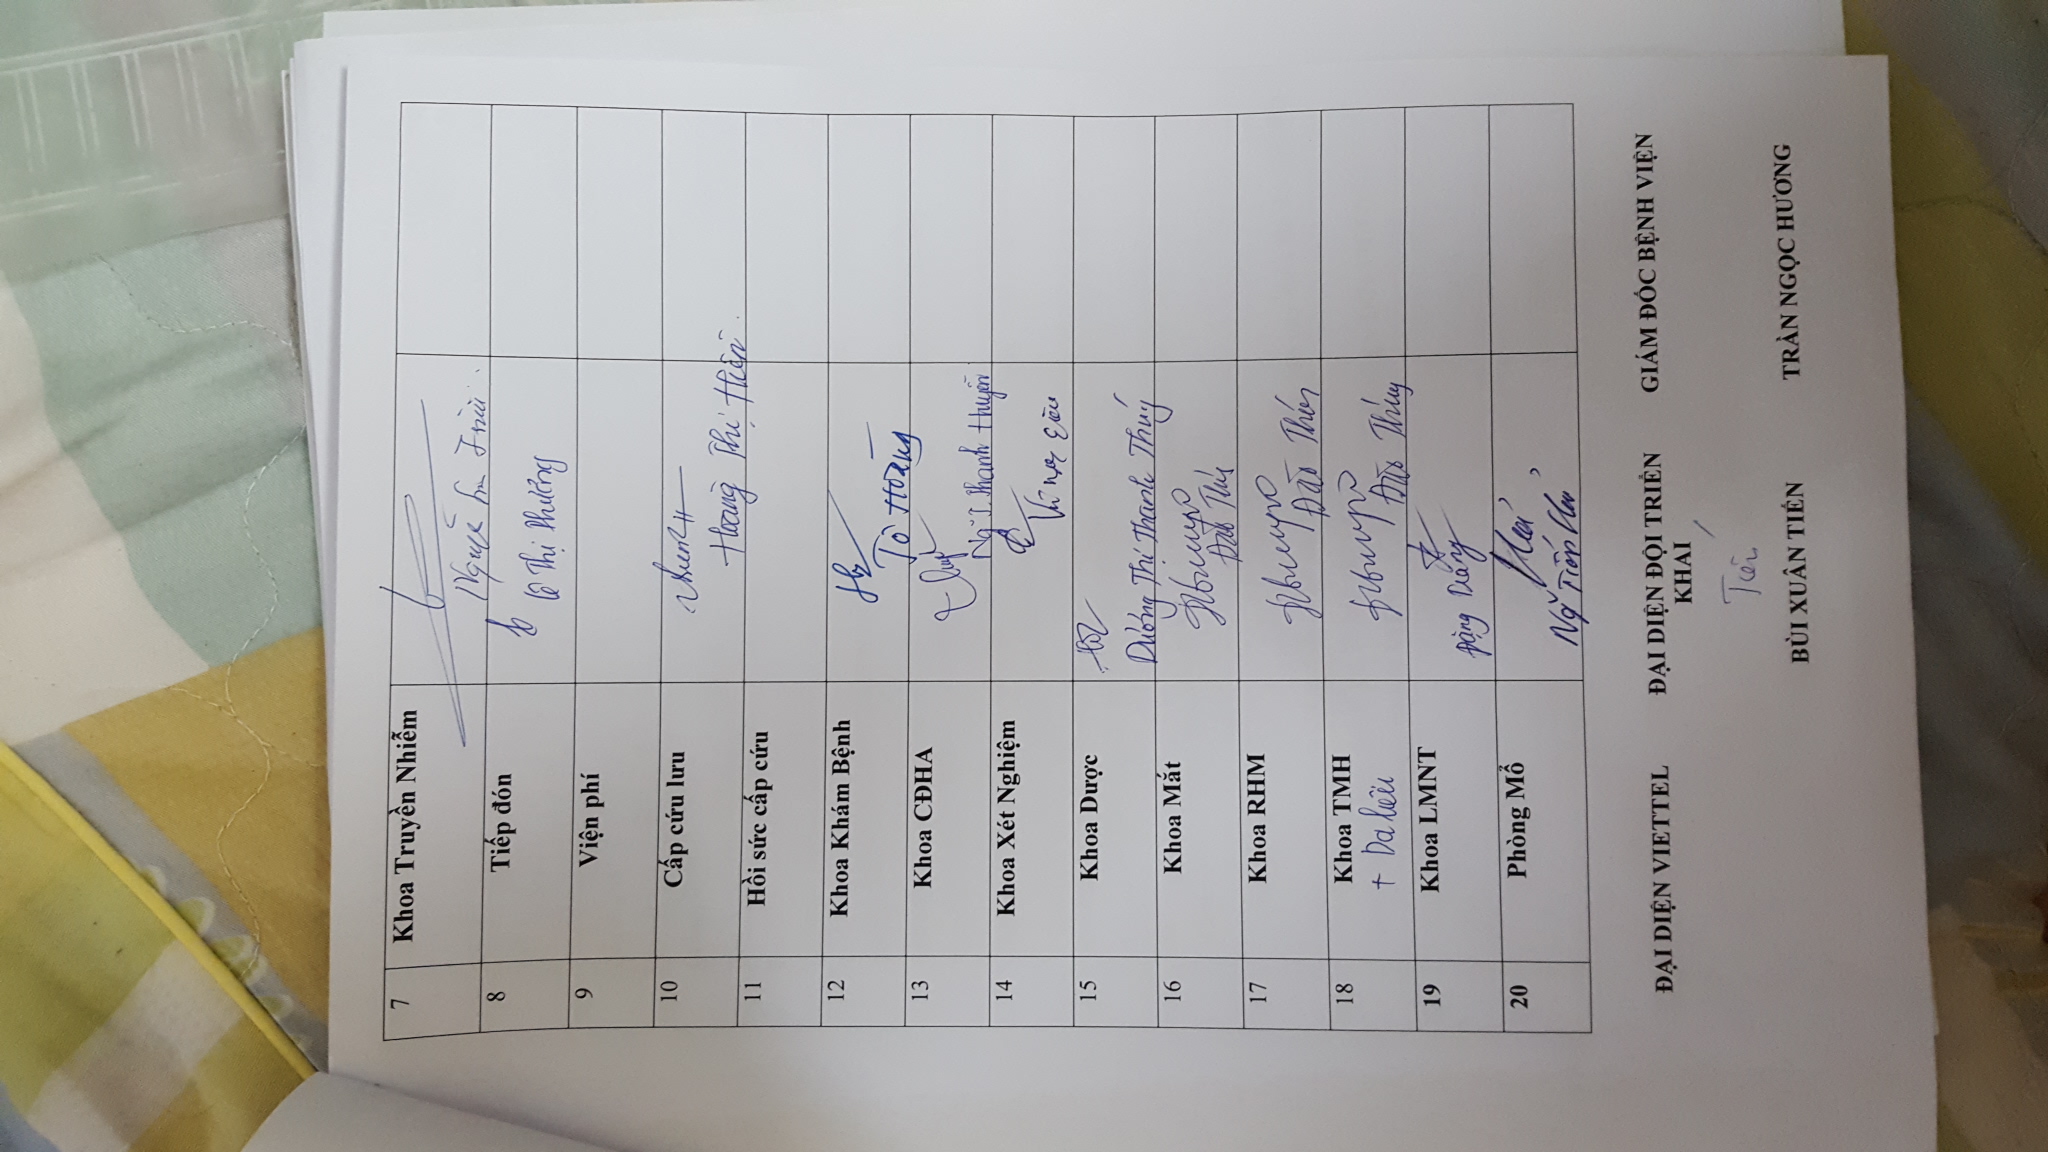 7 Khoa Truyền Nhiễm
Nguyễn
8 Tiếp đón
Lê Thị Phương
9 Viện phí
10 Cấp cứu lưu
Hoàng Thị Hiền
11 Hồi sức cấp cứu
12 Khoa Khám Bệnh
Tô Hoàng
13 Khoa CĐHA
Ng T. Thanh Huyền
14 Khoa Xét Nghiệm
Vũ
15 Khoa Dược
Dương Thị Thanh Thúy
16 Khoa Mắt
Đào Thúy
17 Khoa RHM
Đào Thúy
18 Khoa TMH
+ Da liễu
Đào Thúy
19 Khoa LMNT
Đặng
20 Phòng Mổ
Ng Tiến
ĐẠI DIỆN VIETTEL ĐẠI DIỆN ĐỘI TRIỂN GIÁM ĐỐC BỆNH VIỆN
KHAI
Tiến
BÙI XUÂN TIẾN TRẦN NGỌC HƯƠNG